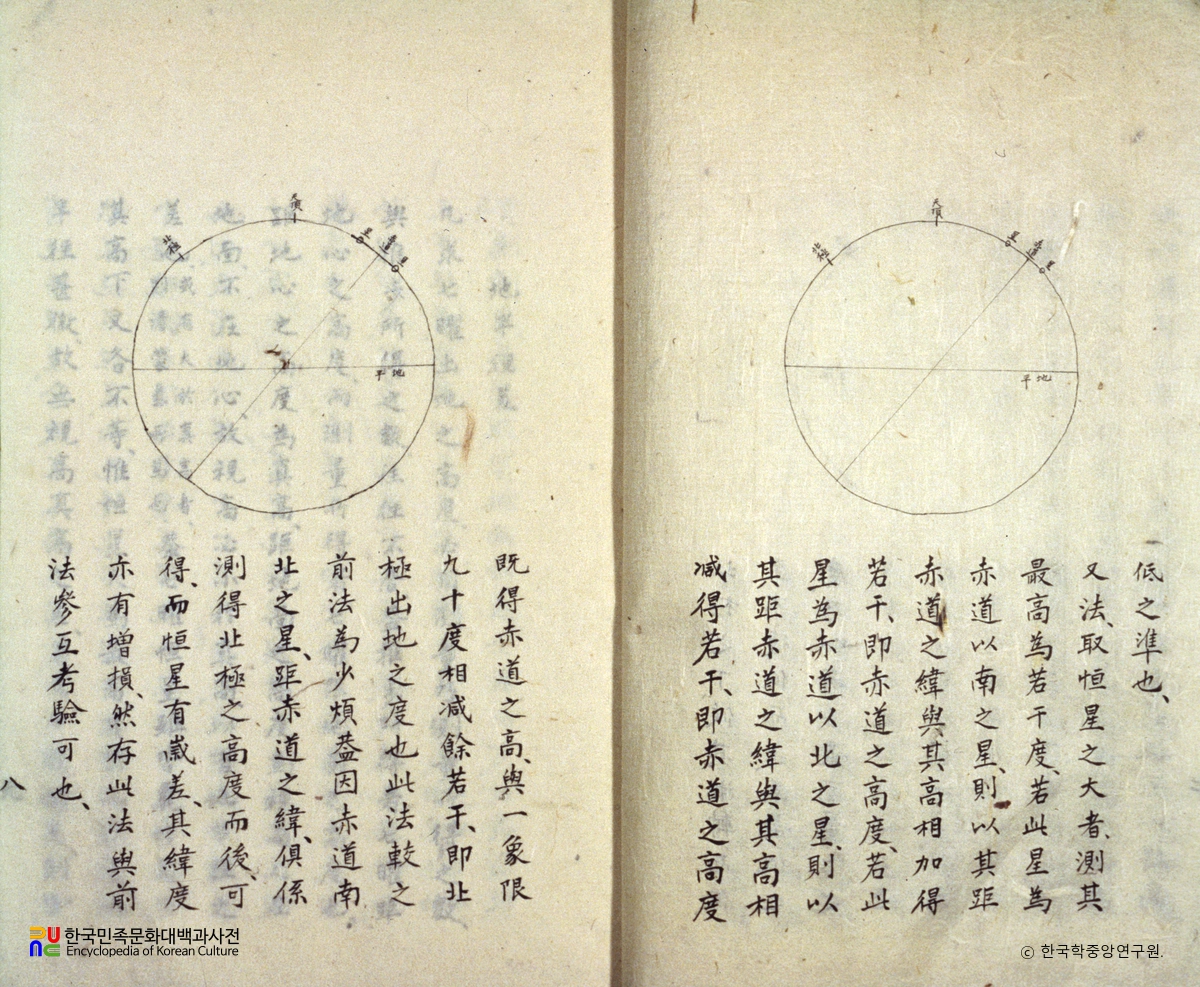 天頂
北極
星
赤道
星
地平
低之準也、
又法、取恒星之大者、測其
最高為若干度、若此星為
赤道以南之星、則以其距
赤道之緯與其高相加得
若干、即赤道之高度、若此
星為赤道以北之星、則以
其距赤道之緯與其高相
减得若干、即赤道之高度
天頂
北極
星
赤道
星
地平
既得赤道之高、與一象限
九十度相减餘若干、即北
極出地之度也此法較之
前法為少煩葢因赤道南
北之星、距赤道之緯、俱係
測得北極之高度而後、可
得、而恒星有歲差、其緯度
亦有增損、然存此法與前
法參互考驗可也、
八
한국민족문화대백과사전
Encyclopedia of Korean Culture
ⓒ 한국학중앙연구원.